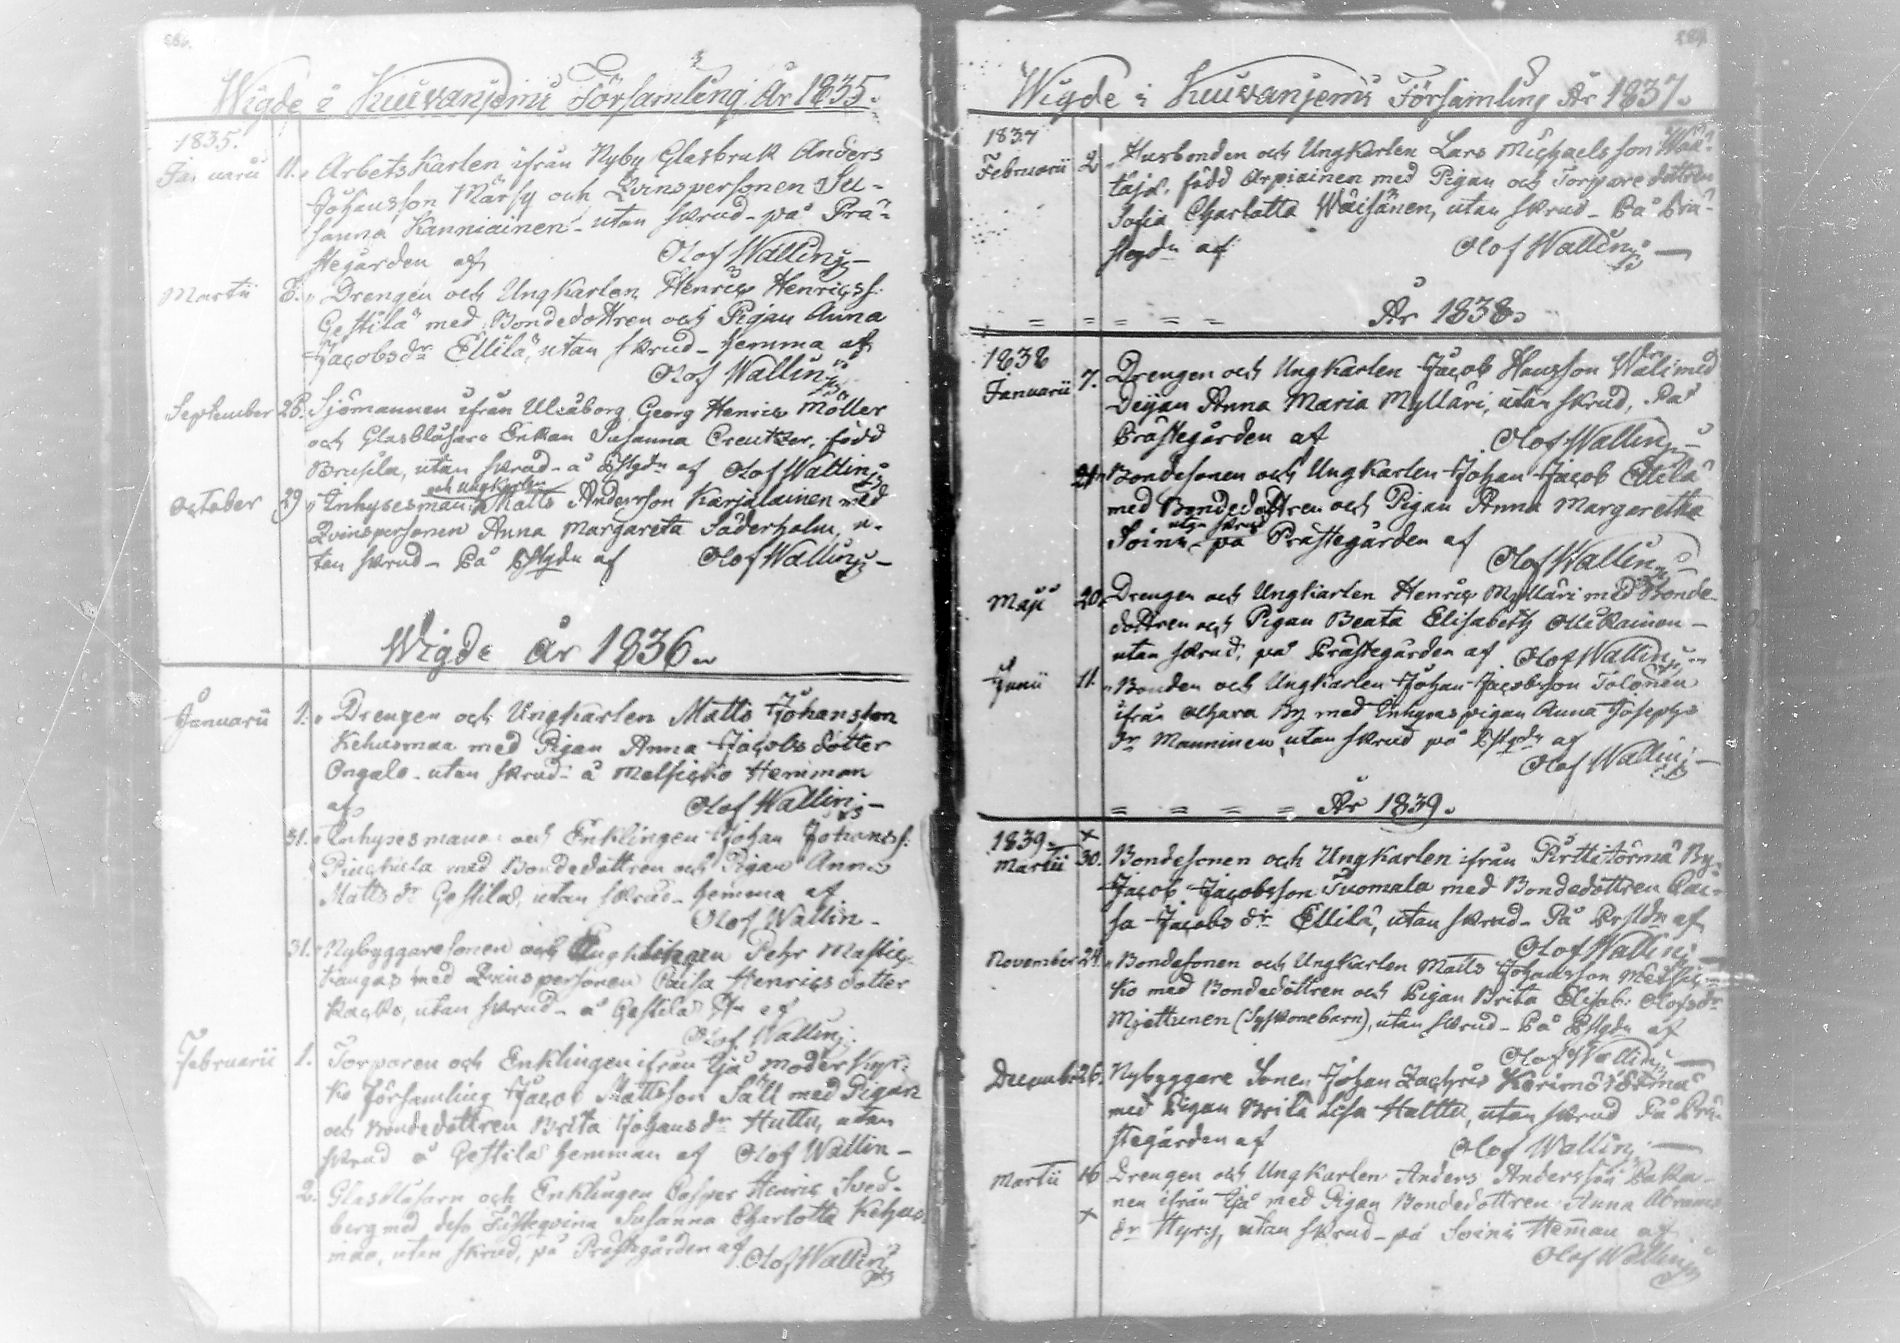 Wigde i Kuivanjemi Församling År 1835.
1835.
Januarii 11. Arbetskarlen ifrån Nyby Glasbruk Anders
Johansson Märsy och Qvinspersonen Su-
sanna Kanniainen - utan skrud - på Prä-
stegården af Olof Wallin
Martii 8. Drengen och Ungkarlen Henric Henricss:
Gestilä med Bondedottren och Pigan Anna
Jacobsdr Ellilä, utan skrud - hemma af
Olof Wallin
September 28. Sjömannen ifrån Uleåborg Georg Henric Möller
och Glasblåsare Enkan Susanna Creutzer, född
Brusila, utan skrud - å Pstgdn af Olof Wallin
och Ungkarlen
October 29 Inhysesman: Matts Andersson Karjalainen med
Qvinspersonen Anna Margareta Söderholm, u-
tan skrud - På Pstgdn af Olof Wallin
Wigde år 1836
Januarii 1. Drengen och Ungkarlen Matts Johansson
Kehusmaa med Pigan Anna Jacobsdotter
Ongalo - utan skrud - å Metsicko Hemman
af Olof Wallin
31. Inhysesmann: och Enklingen Johan Johanss:
med Bondedottren och Pigan Anna
Mattsdr Gestilä, utan skrud - hemma af
Olof Wallin -
31. Nybyggaresonen och Pehr
Kangas med Qvinspersonen Caisa Henricsdotter
utan skrud - å Gestilä af
Olof Wallin
Februarii 1. Torparen och Enklingen ifrån Ijå Moder Kyr-
ko församling Jacob Mattsson Säll med Pigan
och Bondedottren Brita Johansdr Huttu, utan
skrud å Gestilä hemman af Olof Wallin -
2. Glasblåsarn och Enklingen Casper Henric Sved-
berg med dess Fästeqvinna Susanna Charlotta Kehus-
maa, utan skrud, på Prästegården af Olof Wallin
Wigde i Kuivanjemi Församling År 1837.
1837
Februarii 2. Husbonden och Ungkarlen Lars Michaelsson
född Arpiainen med Pigan och Torparedottren
Sofia Charlotta Wäisänen, utan skrud - På Prä-
stegdn af Olof Wallin
År 1838
1838
Januarii 7. Drengen och Ungkarlen Jacob Hansson Wäli med
Deijan Anna Maria Mylläri, utan skrud, På
Prästegården af Olof Wallin
21. Bondesonen och Ungkarlen Johan Jacob Ellilä
med Bondedottren och Pigan Anna Margaretha
utan skrud
Soini - på Prästegården af
Olof Wallin
Maji 20. Drengen och Ungkarlen Henric Mylläri med Bonde-
dottren och Pigan Beata Elisabeth Ollikainen -
utan skrud, på Prästegården af Olof Wallin
Junii 11. Bonden och Ungkarlen Johan Jacobsson Tolonen
ifrån Olhava By med Inhysespigan Anna Josephs
dr Manninen, utan skrud på Pstgdn af
Olof Wallin
= = = = År 1839.
1839.
Martii 30. Bondesonen och Ungkarlen ifrån Pirttitörmä By-
Jacob Jacobsson Tuomala med Bondedottren Cai-
sa Jacobsdr Ellilä, utan skrud - På Prstgdn af
Olof Wallin
November 24. Bondesonen och Ungkarlen Matts Johansson Metsic-
ko med Bondedottren och Pigan Brita Elisab: Olofsdr
Mjettunen (Syskonebarn), utan skrud - På Pstgdn af
Olof Wallin
December 26. Nybyggare Sonen Johan Zachris Kerimöstörmä
med Pigan Brita Lisa Hultta, utan skrud På Prä-
stegården af Olof Wallin
Martii 16 Drengen och Ungkarlen Anders Andersson Paka-
nen ifrån Ijå med Pigan Bondedottren Anna Abrams
dr Hyry, utan skrud - på Soini Heman af
Olof Wallin